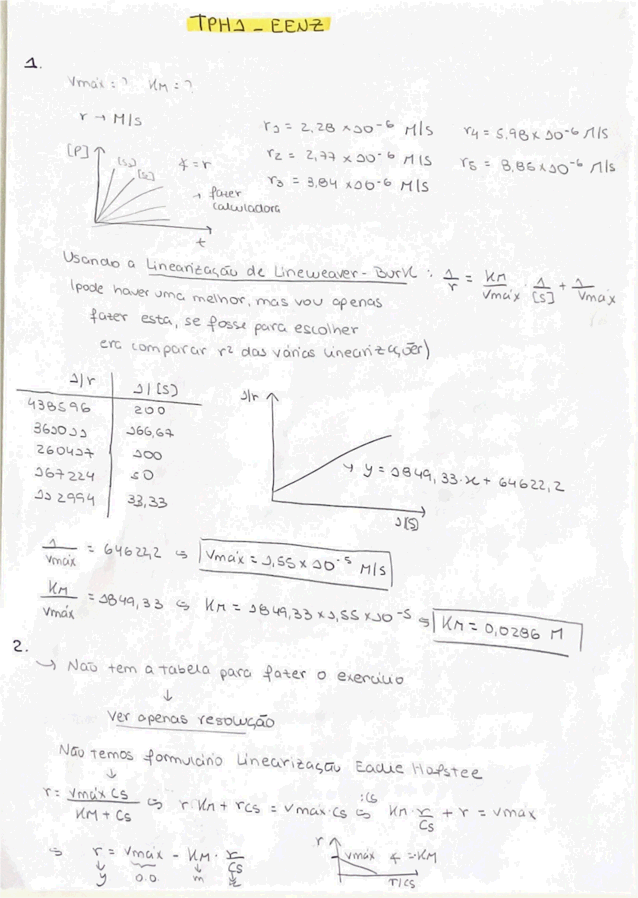 TPH1 - EENZ
1.
Vmáx = ? KM = ?
r → M/s
r1 = 2,28 × 10^-6 M/s r4 = 5,98 × 10^-6 M/s
r2 = 2,77 × 10^-6 M/s r5 = 8,85 × 10^-6 M/s
r3 = 3,84 × 10^-6 M/s
[P]
[S1]
[S2]
∢ = r
→ fazer
calculadora
t
Usando a Linearização de Lineweaver-Burk : 1/r = KM/Vmáx · 1/[S] + 1/Vmáx
(pode haver uma melhor, mas vou apenas
fazer esta, se fosse para escolher
era comparar r² das várias linearizações)
1/r 1/[S]
438596 200
361011 166,67
260417 100
167224 50
112994 33,33
1/r
→ y = 1849,33·x + 64622,2
1/[S]
1/Vmáx = 64622,2 ⇔ Vmáx = 1,55 × 10^-5 M/s
KM/Vmáx = 1849,33 ⇔ KM = 1849,33 × 1,55 × 10^-5 ⇔ KM = 0,0286 M
2.
→ Não tem a tabela para fazer o exercício
↓
Ver apenas resolução
Não temos formulário Linearização Eadie Hofstee
↓
r = Vmáx Cs/KM + Cs ⇔ r·KM + rCs = Vmáx·Cs ⇔ :Cs KM r/Cs + r = Vmax
⇔ r = Vmáx - KM · r/Cs
y o.o. m x
r
Vmáx ∢ = -KM
r/Cs